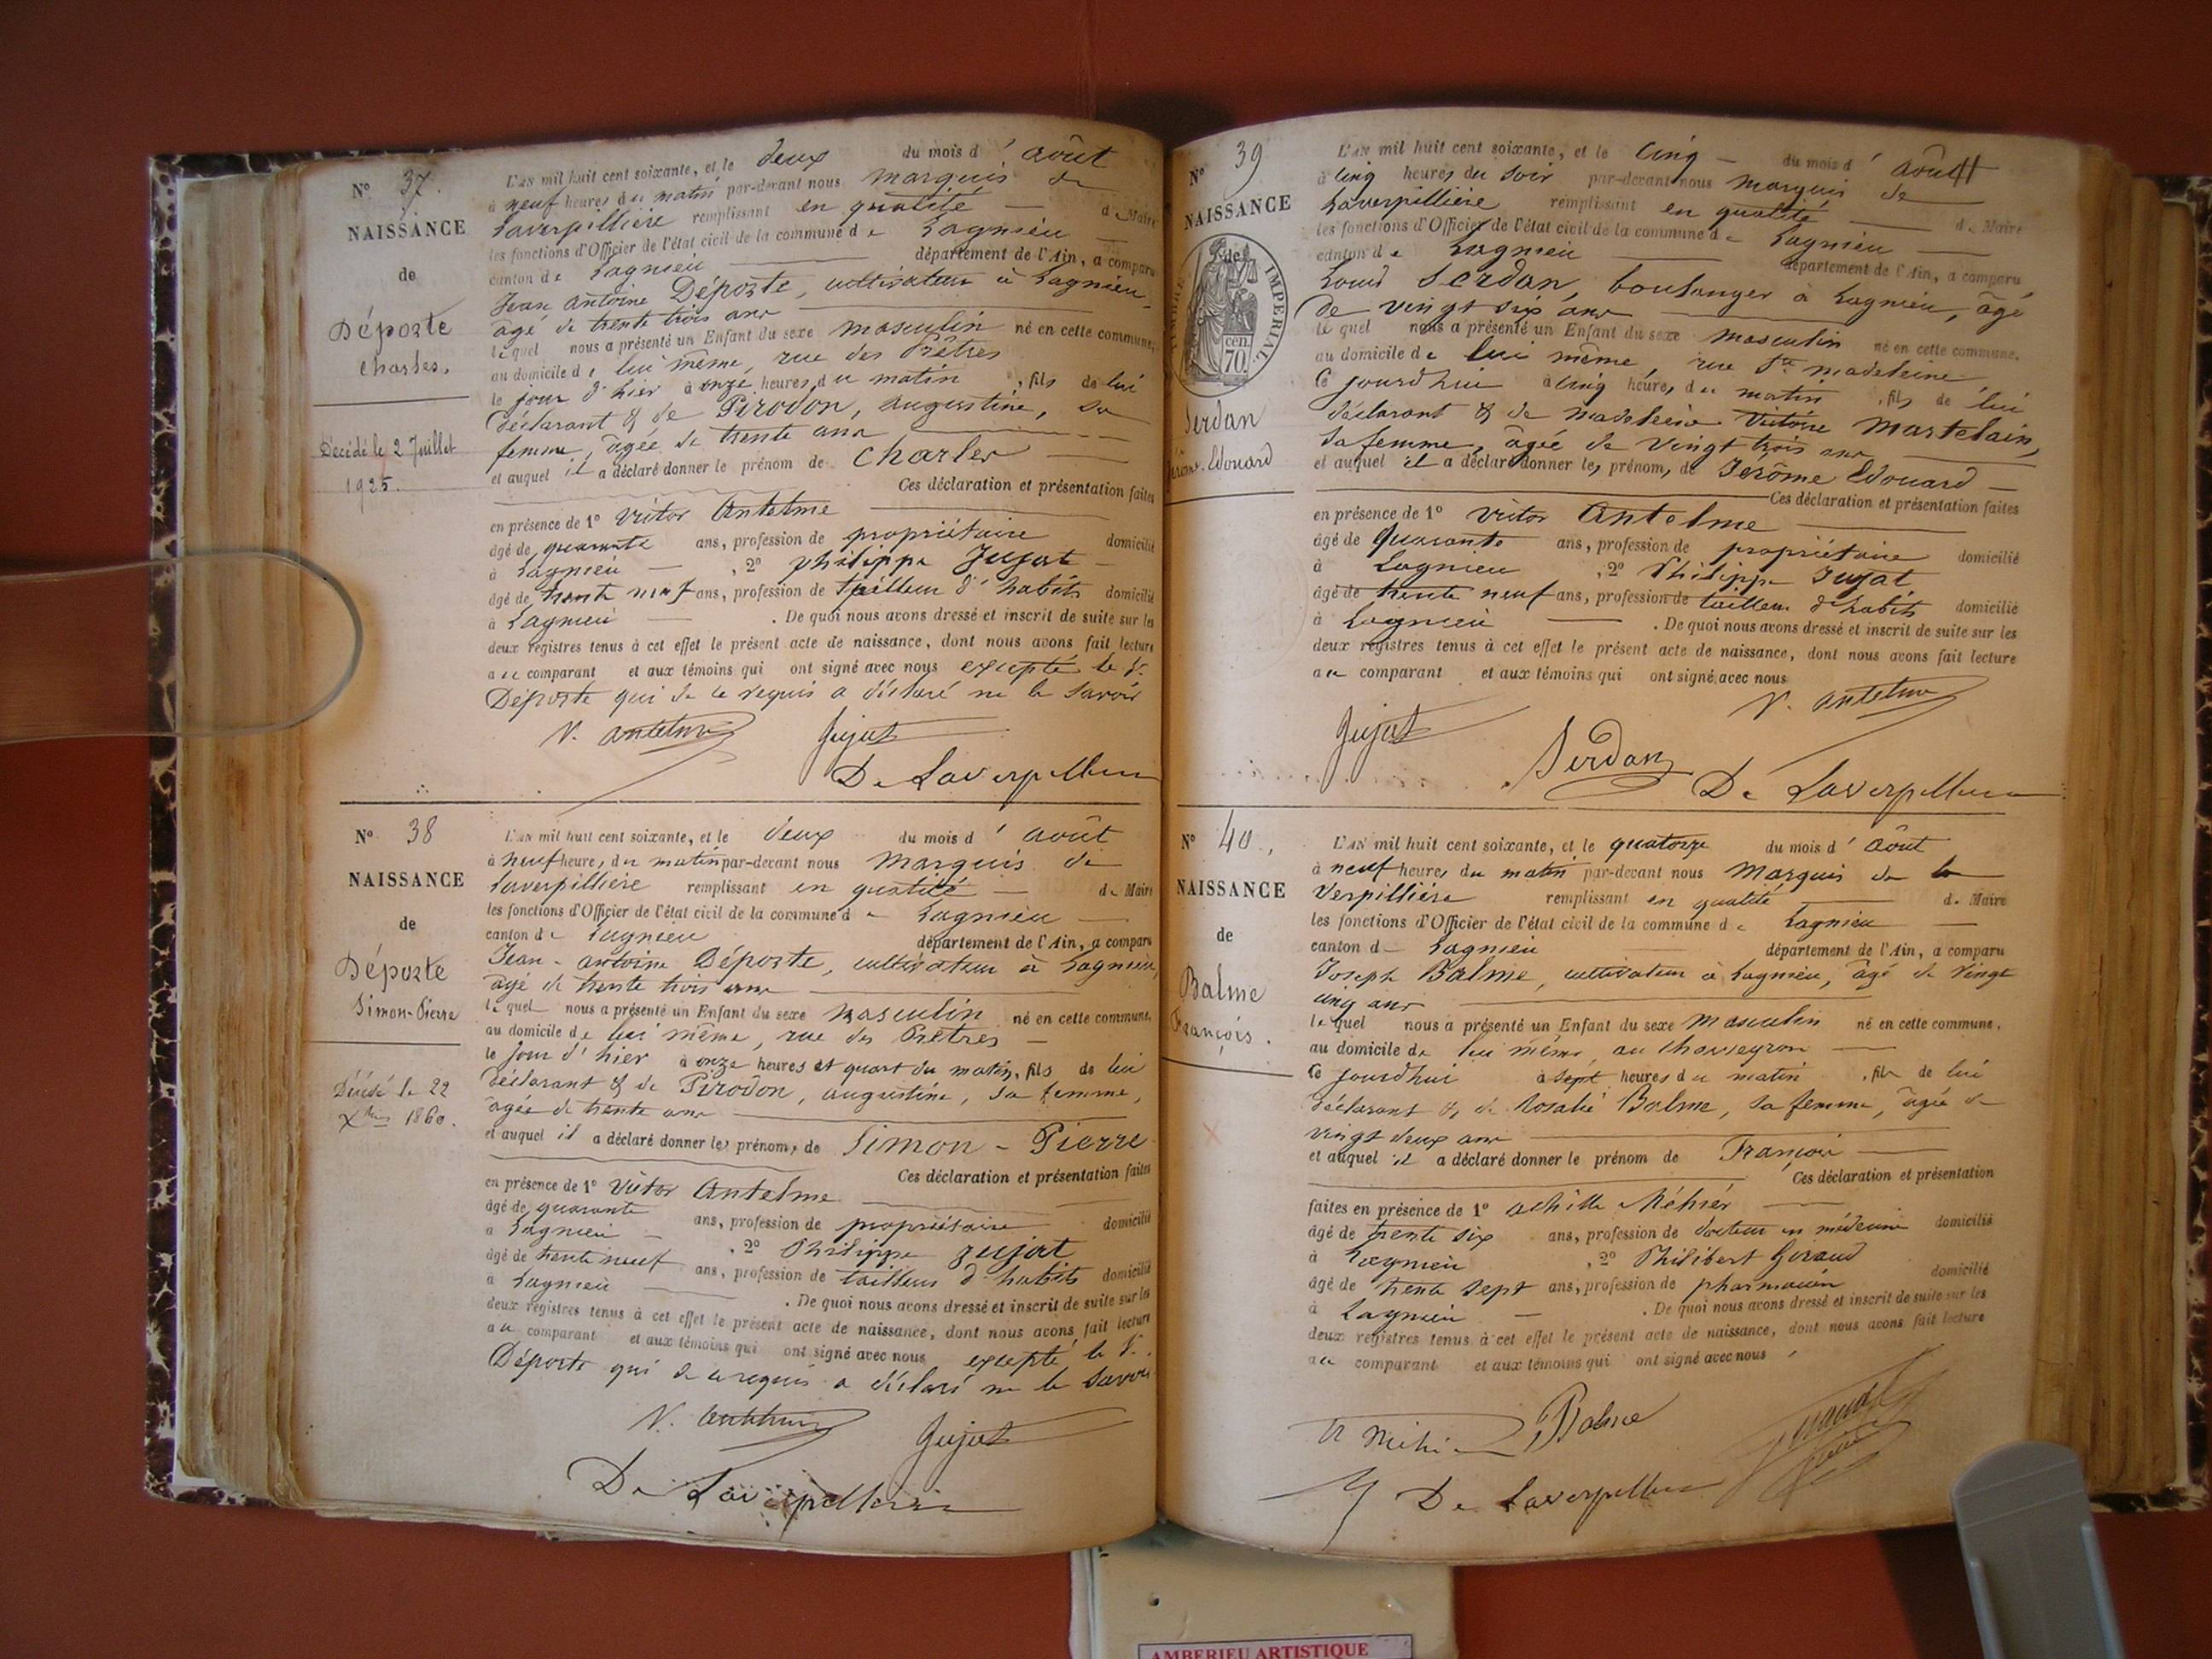 N° 37.
NAISSANCE
de
Déporte
Charles.
Décédé le 2 Juillet
1925.
L'AN mil huit cent soixante, et le deux du mois d'août
à neuf heures du matin par-devant nous marquis de
Laverpillière remplissant en qualité de Maire
les fonctions d'Officier de l'état civil de la commune de Lagnieu
canton de Lagnieu département de l'Ain, a comparu
Jean Antoine Déporte, cultivateur à Lagnieu,
âgé de trente trois ans
lequel nous a présenté un Enfant du sexe masculin né en cette commune,
au domicile de lui même, rue des Prêtres
le jour d'hier à onze heures du matin, fils de lui
déclarant & de Pirodon, augustine, sa
femme, âgée de trente ans
et auquel il a déclaré donner le prénom de Charles
Ces déclaration et présentation faites
en présence de 1° Victor Antelme
âgé de quarante ans, profession de propriétaire domicilié
à Lagnieu, 2° Philippe Jujat
âgé de trente neuf ans, profession de tailleur d'habits domicilié
à Lagnieu. De quoi nous avons dressé et inscrit de suite sur les
deux registres tenus à cet effet le présent acte de naissance, dont nous avons fait lecture
au comparant et aux témoins qui ont signé avec nous excepté le S.
Déporte qui de ce requis a déclaré ne le savoir
V. Antelme Jujat
De Laverpilliere
N° 38
NAISSANCE
de
Déporte
Simon-Pierre
Décédé le 22
Xbre 1860.
L'AN mil huit cent soixante, et le deux du mois d'août
à neuf heures du matin par-devant nous Marquis de
Laverpillière remplissant en qualité de Maire
les fonctions d'Officier de l'état civil de la commune de Lagnieu
canton de Lagnieu département de l'Ain, a comparu
Jean-antoine Déporte, cultivateur à Lagnieu,
âgé de trente trois ans
lequel nous a présenté un Enfant du sexe masculin né en cette commune,
au domicile de lui même, rue des Prêtres
le jour d'hier à onze heures et quart du matin, fils de lui
déclarant & de Pirodon, augustine, sa femme,
âgée de trente ans
et auquel il a déclaré donner les prénoms de Simon-Pierre
Ces déclaration et présentation faites
en présence de 1° Victor Antelme
âgé de quarante ans, profession de propriétaire domicilié
à Lagnieu, 2° Philippe Jujat
âgé de trente neuf ans, profession de tailleur d'habits domicilié
à Lagnieu. De quoi nous avons dressé et inscrit de suite sur les
deux registres tenus à cet effet le présent acte de naissance, dont nous avons fait lecture
au comparant et aux témoins qui ont signé avec nous excepté le S.
Déporte qui de ce requis a déclaré ne le savoir
V. Antelme Jujat
De Laverpilliere
N° 39
NAISSANCE
de
TIMBRE IMPERIAL
70 cen
Serdan
Jérome-Edouard
L'AN mil huit cent soixante, et le cinq du mois d'août
à cinq heures du soir par-devant nous marquis de
Laverpillière remplissant en qualité de Maire
les fonctions d'Officier de l'état civil de la commune de Lagnieu
canton de Lagnieu département de l'Ain, a comparu
Louis Serdan, boulanger à Lagnieu, âgé
de vingt six ans
lequel nous a présenté un Enfant du sexe masculin né en cette commune,
au domicile de lui même, rue Ste madeleine
Ce jourd'hui à cinq heures du matin, fils de lui
déclarant & de madeleine Victoire Martelain,
sa femme, âgée de vingt trois ans
et auquel il a déclaré donner les prénoms de Jerôme Edouard
Ces déclaration et présentation faites
en présence de 1° Victor Antelme
âgé de quarante ans, profession de propriétaire domicilié
à Lagnieu, 2° Philippe Jujat
âgé de trente neuf ans, profession de tailleur d'habits domicilié
à Lagnieu. De quoi nous avons dressé et inscrit de suite sur les
deux registres tenus à cet effet le présent acte de naissance, dont nous avons fait lecture
au comparant et aux témoins qui ont signé avec nous
V. Antelme
Jujat Serdan De Laverpilliere
N° 40.
NAISSANCE
de
Balme
François.
L'AN mil huit cent soixante, et le quatorze du mois d'août
à neuf heures du matin par-devant nous Marquis de la
Verpillière remplissant en qualité de Maire
les fonctions d'Officier de l'état civil de la commune de Lagnieu
canton de Lagnieu département de l'Ain, a comparu
Joseph Balme, cultivateur à Lagnieu, âgé de vingt
cinq ans
lequel nous a présenté un Enfant du sexe masculin né en cette commune,
au domicile de lui même, au
Ce jourd'hui à sept heures du matin, fils de lui
déclarant & de Rosalie Balme, sa femme, âgée de
vingt deux ans
et auquel il a déclaré donner le prénom de François
Ces déclaration et présentation
faites en présence de 1° achille Méhier
âgé de trente six ans, profession de docteur en médecine domicilié
à Lagnieu, 2° Philibert Giraud
âgé de trente sept ans, profession de pharmacien domicilié
à Lagnieu. De quoi nous avons dressé et inscrit de suite sur les
deux registres tenus à cet effet le présent acte de naissance, dont nous avons fait lecture
au comparant et aux témoins qui ont signé avec nous
Balme
De Laverpilliere
AMBERIEU ARTISTIQUE